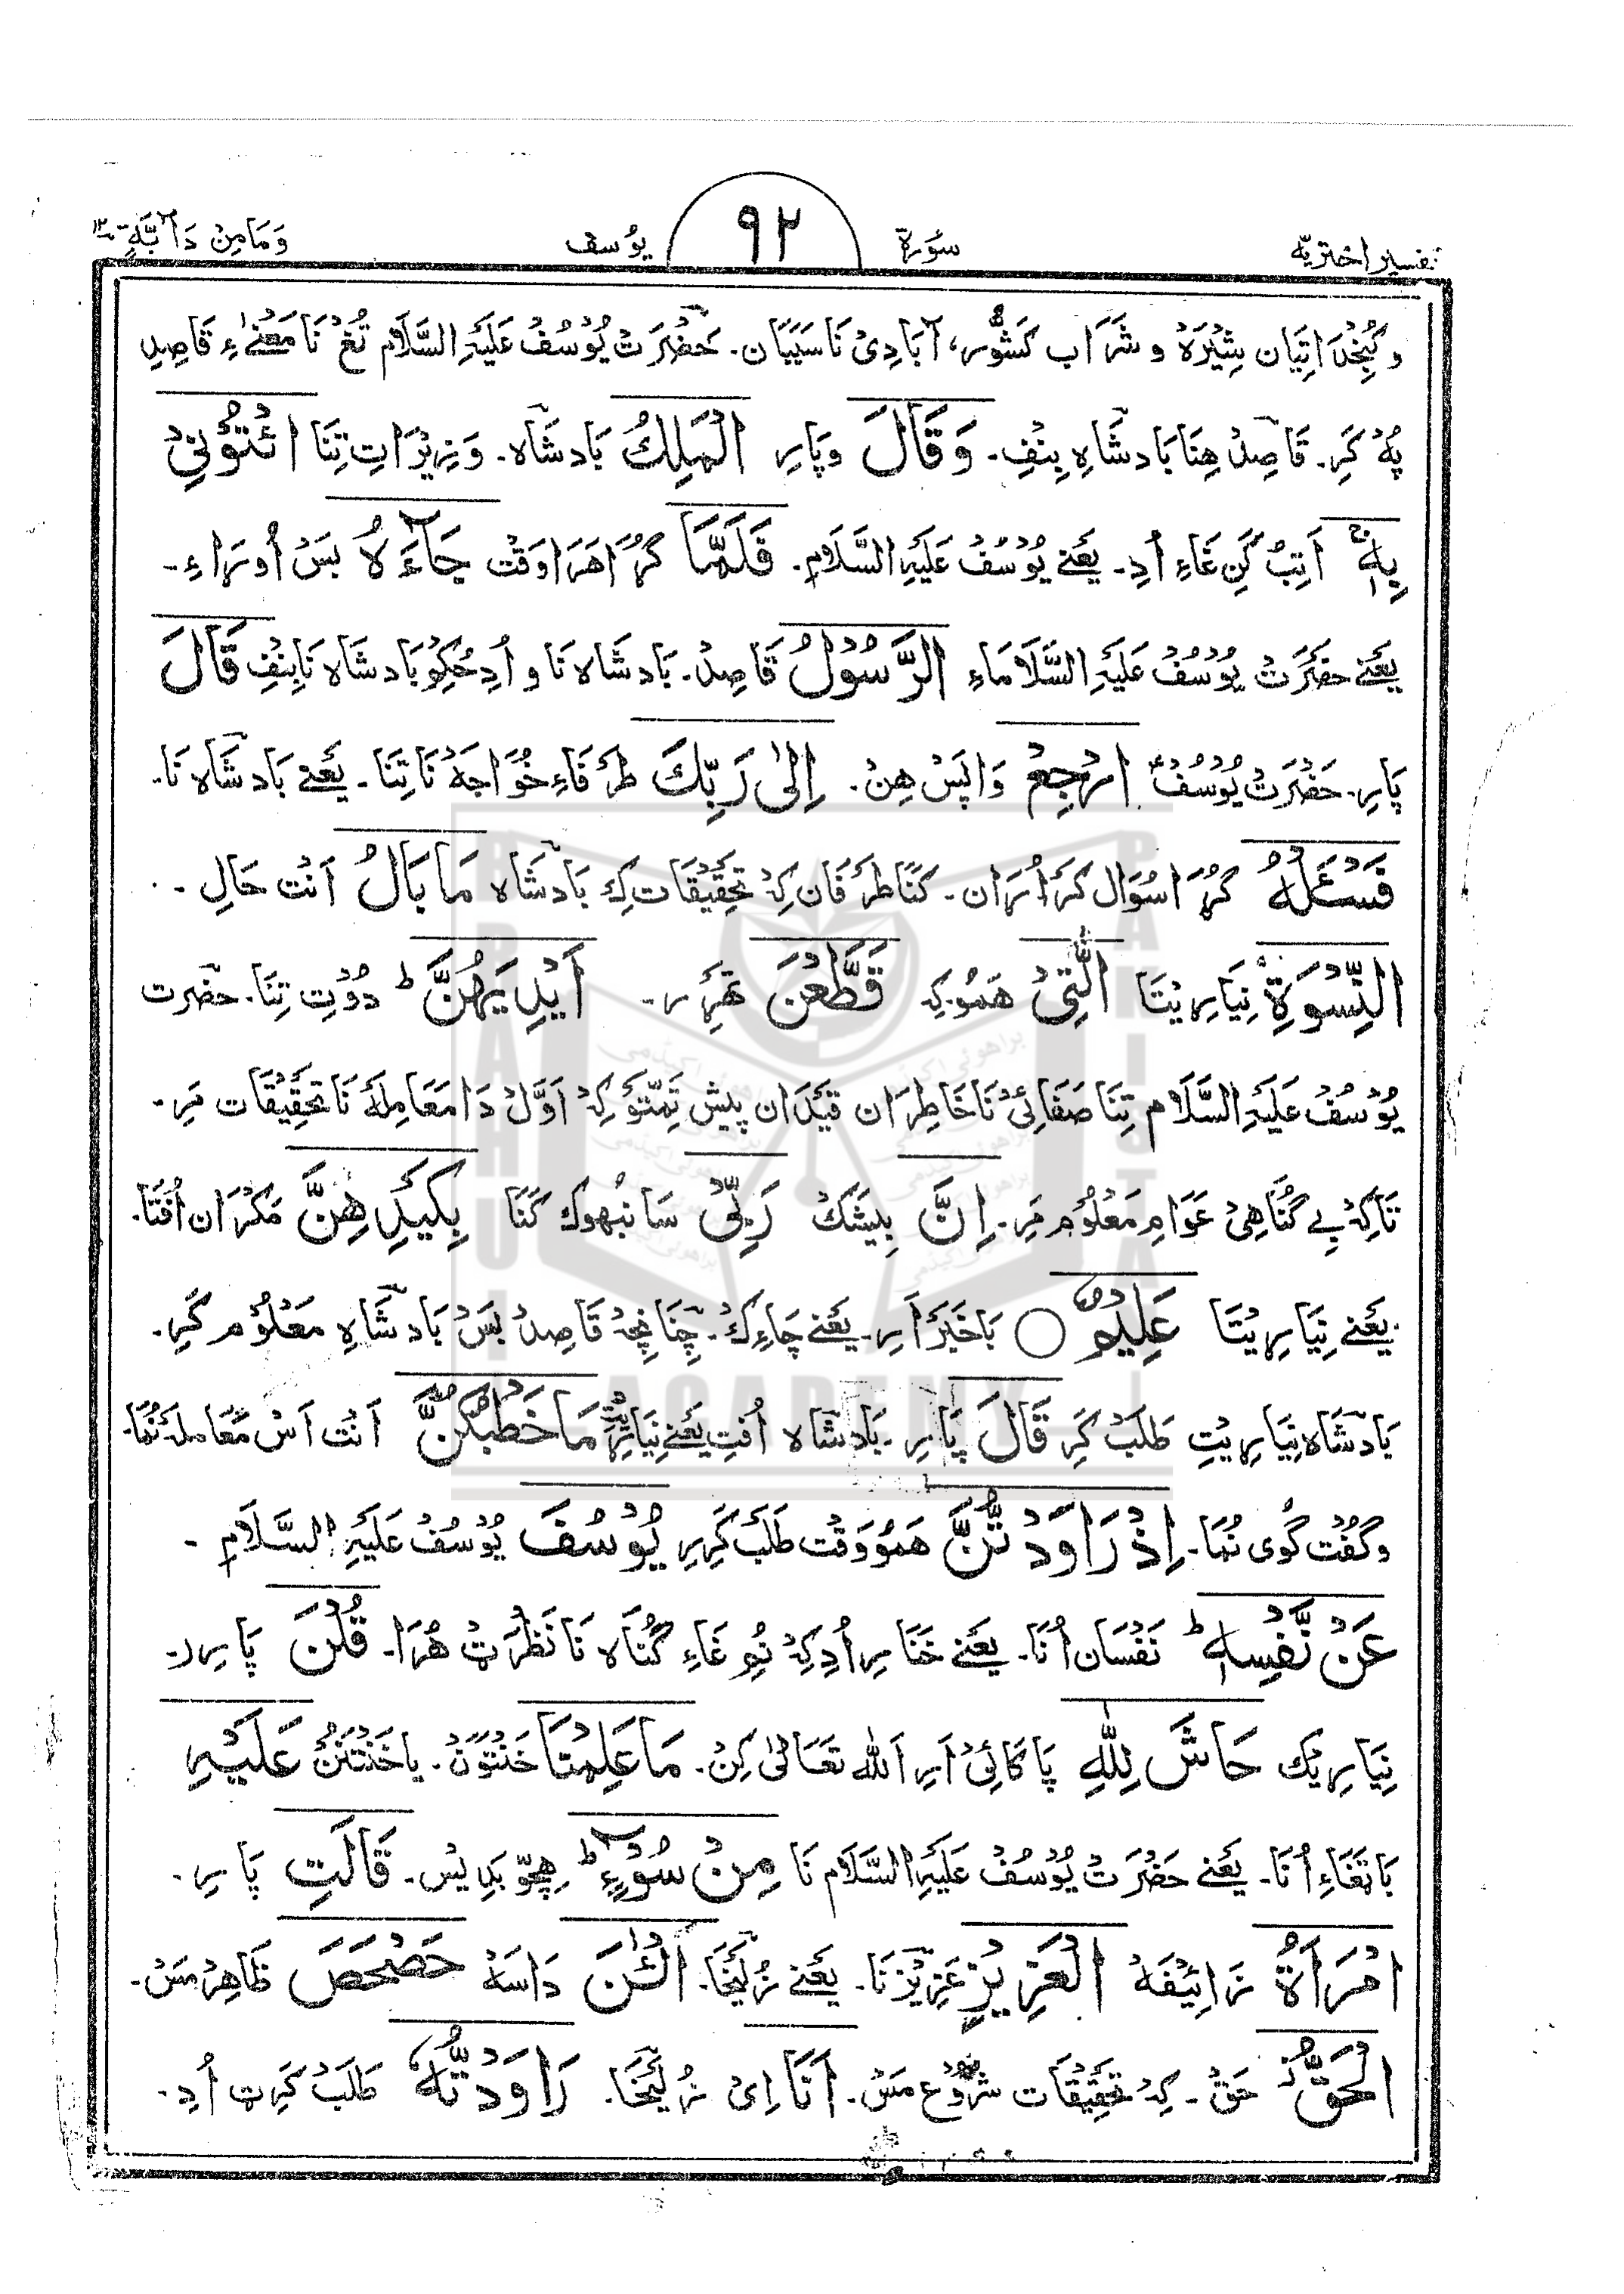 تفسیر اختریه
سُوْرَة
٩٢
یوُسف
وَمَامِنْ دَآبَّةٍ ١٢
و کُچخُدَ اتِیَان شِیْرَهْ و شَرَاب کَشُّر، آبَادِیْ نَاسَیَیَان۔ حَضْرَتْ یُوْسُفْ عَلَیْہِ السَّلَام تُغْ نَا مَعْنٰےٰءِ قَاصِدِ
پُهْ کَرِ۔ قَاصِدْ هِنَا بَادشَاہِ بِنْفِ۔ وَقَالَ وپَارِ الْمَلِكُ بَادشَاه۔ وَزِیْرَاتِ تِنَا ائْتُوْنِیْ
بِهٖ اَتِبُ کَنِ غَاءِ اُدِ۔ یَعْنے یُوْسُفْ عَلَیْہِ السَّلَامِ۔ فَلَمَّا گُرَا هَرَا وَقْت جَآءَہُ بَسْ اُورَاءِ۔
یَعْنے حضْرَتْ یُوْسُفْ عَلَیْہِ السَّلَامَاءِ الرَّسُوْلُ قَاصِدْ۔ بَادشَاہ نَا و اُدِ حُکِمْ بَادشَاہ نَا بِنْفِ قَالَ
پَارِ۔ حَضْرَتْ یُوْسُفْ ارْجِعْ وَاپَسْ هِنْ۔ اِلٰی رَبِّكَ طَرَفَاءِ خُوَاجَهْ نَا تِنَا۔ یَعْنے بَادشَاہ نَا۔
فَسْئَلْهُ گُرَا سُوَال کَرَ اُرَان۔ کَنَا طَرَفَان کِهْ تَحْقِیْقَات کِ بَادشَاہ مَا بَالُ اَنْت حَالِ۔
النِّسْوَةِ نِیَارِیْتَا الّٰتِیْ هَمُو کِهْ قَطَّعْنَ تَهَرِ۔ اَیْدِیَهُنَّ ط دُوْتِ تِنَا۔ حضرت
یُوْسُفْ عَلَیْہِ السَّلَام تِنَا صَفَائِیْ نَا خَاطِرَان قَیْدَان پیش تَمِتَّو کِهْ اَوَّلْ دَا مَعَامِلَهْ نَا تَحْقِیْقَات مَرِ۔
تَاکِهْ بے گُنَاهِیْ عَوَامِ مَعْلُوم مَرِ۔ اِنَّ بِیْشَكْ رَبِّیْ سَانبُهوك کَنَا بِکَیْدِهِنَّ مَکْرَان اُفْتَا۔
یَعْنے نِیَارِیْتَا عَلِیْمٌ ○ بَاخَبَرْ اَرِ۔ یَعْنے چَاءِكْ۔ چَنَانچِهْ قَاصِدْ بَسْ بَادشَاہِ مَعْلُوم کَرِ۔
بَادشَاہ نِیَارِیْتِ طَلَبْ کَرِ قَالَ پَارِ۔ بَادشَاہ اُفْتِ یَعْنے نِیَارِیْتِ مَا خَطْبُکُنَّ اَنْت اَسْ مُعَامِلَهْ نُمَا۔
و گُفْت گُوی نُمَا۔ اِذْ رَاوَدْتُّنَّ هَمُو وَقْت طَلَبْ کَرِرِ یُوْسُفَ یُوْسُفْ عَلَیْہِ السَّلَامِ۔
عَنْ نَّفْسِهٖ ط نَفْسَان اُنَا۔ یَعْنے خَنَارِ اُدِ کِهْ نُمِ غَاءِ گُنَاہ نَا نَظْرَتْ هُرَا۔ قُلْنَ پَارِر۔
نِیَارِیْك حَاشَ لِلّٰهِ پَاکَائِیْ اَرِ اَللّٰہ تَعَالیٰ کِنْ۔ مَا عَلِمْنَا خَنْتَوْنْ۔ یا خَنْتَنَنْ عَلَیْهِ
بَاتْغَاءِ اُنَا۔ یَعْنے حَضْرَتْ یُوْسُفْ عَلَیْہِ السَّلَام نَا مِنْ سُوْٓءٍ ط هِچّو بَدِیس۔ قَالَتِ پَارِ۔
امْرَاَةُ زَائِیْفَهْ الْعَزِیْزِ عَزِیْزْ نَا۔ یَعْنے زُلَیْخَا۔ الْئٰنَ دَاسَهْ حَصْحَصَ ظَاهِرْ مَسْ۔
الْحَقُّ حَقْ۔ کِهْ تَحْقِیْقَات شُرُوْع مَسْ۔ اَنَا اِیْ زُلَیْخَا۔ رَاوَدْتُّهٗ طَلَبْ کَرِیْت اُدِ۔